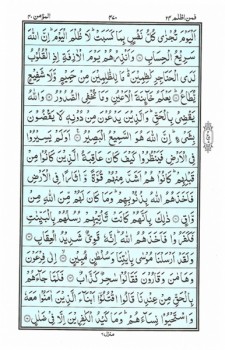 فمن اظلم ۲۴ المؤمن ۴۰
اَلْيَوْمَ تُجْزٰى كُلُّ نَفْسٍ بِمَا كَسَبَتْ ؕ لَا ظُلْمَ الْيَوْمَ ؕ اِنَّ اللّٰهَ
سَرِيْعُ الْحِسَابِ ۝ وَاَنْذِرْهُمْ يَوْمَ الْاٰزِفَةِ اِذِ الْقُلُوْبُ
لَدَى الْحَنَاجِرِ كٰظِمِيْنَ ؕ مَا لِلظّٰلِمِيْنَ مِنْ حَمِيْمٍ وَّلَا شَفِيْعٍ
يُّطَاعُ ۝ يَعْلَمُ خَآئِنَةَ الْاَعْيُنِ وَمَا تُخْفِى الصُّدُوْرُ ۝ وَاللّٰهُ
يَقْضِيْ بِالْحَقِّ ؕ وَالَّذِيْنَ يَدْعُوْنَ مِنْ دُوْنِهٖ لَا يَقْضُوْنَ
بِشَيْءٍ ؕ اِنَّ اللّٰهَ هُوَ السَّمِيْعُ الْبَصِيْرُ ۝ اَوَلَمْ يَسِيْرُوْا
فِى الْاَرْضِ فَيَنْظُرُوْا كَيْفَ كَانَ عَاقِبَةُ الَّذِيْنَ كَانُوْا مِنْ
قَبْلِهِمْ ؕ كَانُوْا هُمْ اَشَدَّ مِنْهُمْ قُوَّةً وَّاٰثَارًا فِى الْاَرْضِ
فَاَخَذَهُمُ اللّٰهُ بِذُنُوْبِهِمْ ؕ وَمَا كَانَ لَهُمْ مِّنَ اللّٰهِ مِنْ
وَّاقٍ ۝ ذٰلِكَ بِاَنَّهُمْ كَانَتْ تَّاْتِيْهِمْ رُسُلُهُمْ بِالْبَيِّنٰتِ
فَكَفَرُوْا فَاَخَذَهُمُ اللّٰهُ ؕ اِنَّهٗ قَوِيٌّ شَدِيْدُ الْعِقَابِ ۝
وَلَقَدْ اَرْسَلْنَا مُوْسٰى بِاٰيٰتِنَا وَسُلْطٰنٍ مُّبِيْنٍ ۝ اِلٰى فِرْعَوْنَ
وَهَامٰنَ وَقَارُوْنَ فَقَالُوْا سٰحِرٌ كَذَّابٌ ۝ فَلَمَّا جَآءَهُمْ
بِالْحَقِّ مِنْ عِنْدِنَا قَالُوا اقْتُلُوْٓا اَبْنَآءَ الَّذِيْنَ اٰمَنُوْا مَعَهٗ
وَاسْتَحْيُوْا نِسَآءَهُمْ ؕ وَمَا كَيْدُ الْكٰفِرِيْنَ اِلَّا فِيْ ضَلٰلٍ ۝